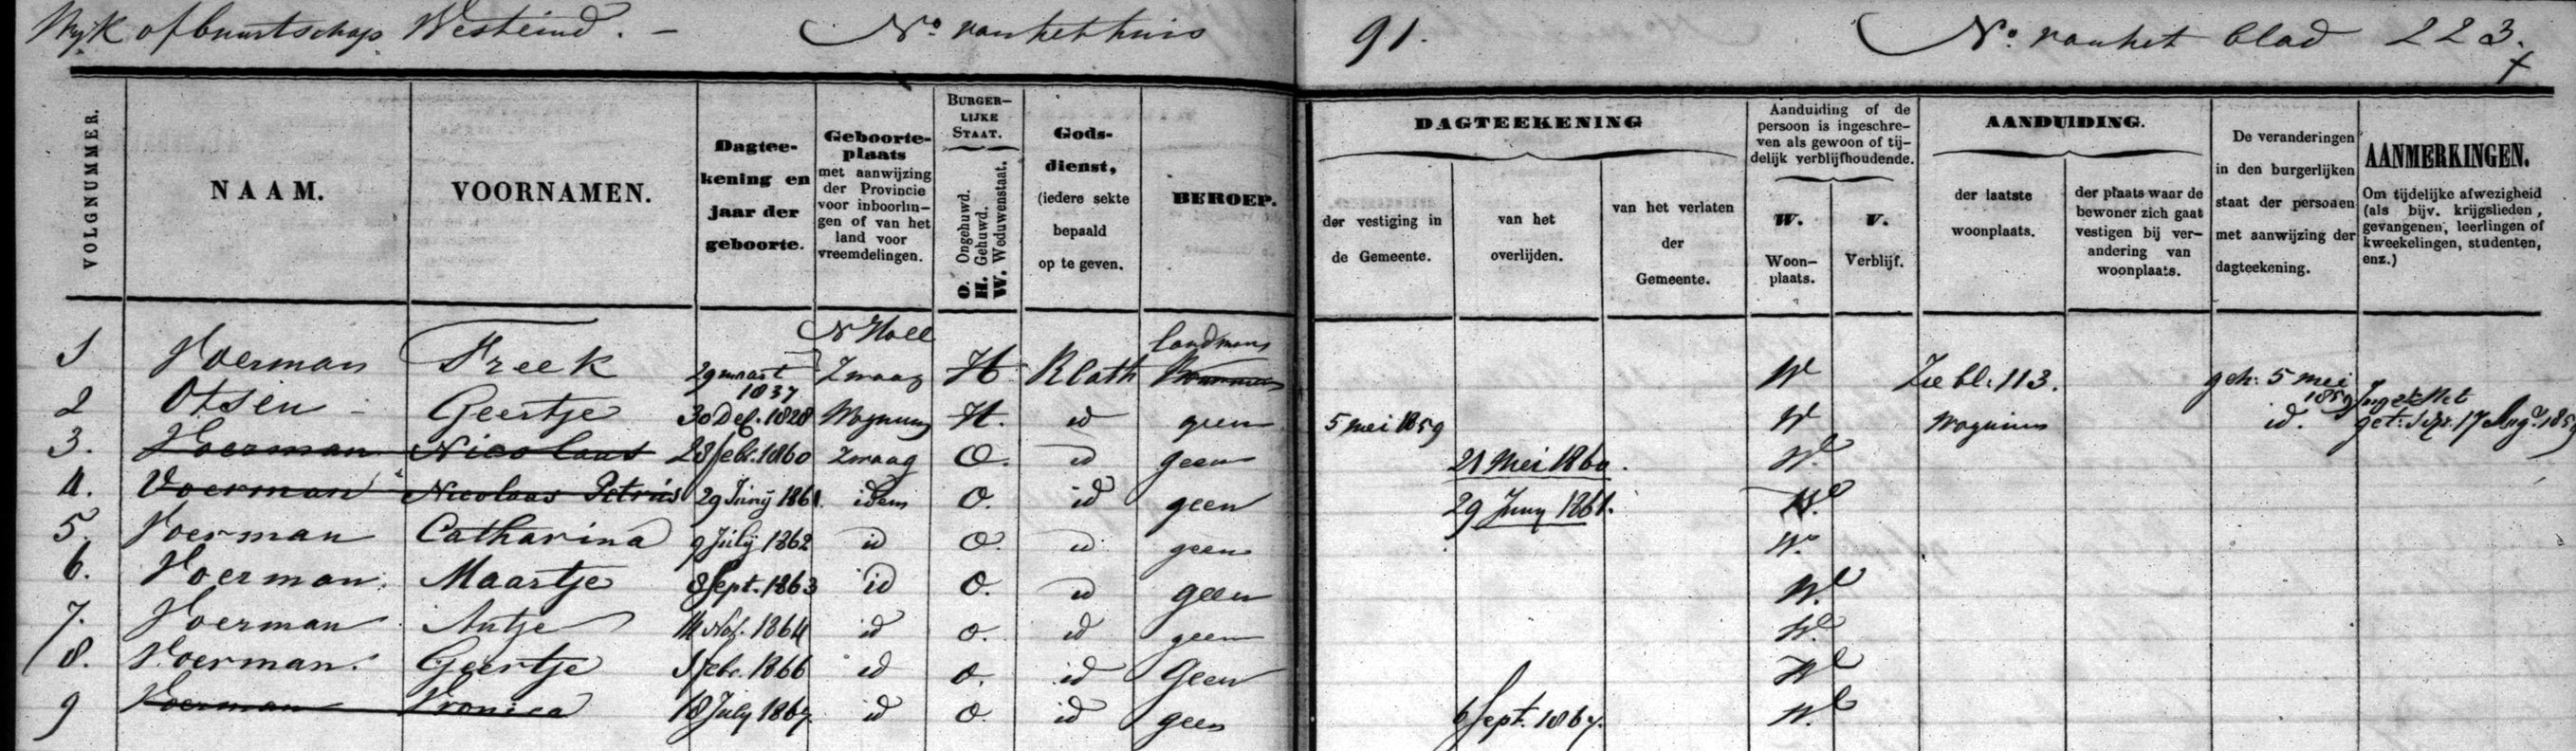 Wijk of buurtschap Westeind. - No. van het huis 91. No. van het blad 223.
VOLGNUMMER.
NAAM.
VOORNAMEN.
Dagtee-
kening en
jaar der
geboorte.
Geboorte-
plaats
met aanwijzing
der Provincie
voor inboorlin-
gen of van het
land voor
vreemdelingen.
BURGER-
LIJKE
STAAT.
O. Ongehuwd.
H. Gehuwd.
W. Weduwenstaat.
Gods-
dienst,
(iedere sekte
bepaald
op te geven.
BEROEP.
DAGTEEKENING
der vestiging in
de Gemeente.
van het
overlijden.
van het verlaten
der
Gemeente.
Aanduiding of de
persoon is ingeschre-
ven als gewoon of tij-
delijk verblijfhoudende.
W.
Woon-
plaats.
V.
Verblijf.
AANDUIDING.
der laatste
woonplaats.
der plaats waar de
bewoner zich gaat
vestigen bij ver-
andering van
woonplaats.
De veranderingen
in den burgerlijken
staat der personen
met aanwijzing der
dagteekening.
AANMERKINGEN.
Om tijdelijke afwezigheid
(als bijv. krijgslieden,
gevangenen, leerlingen of
kweekelingen, studenten,
enz.)
N Holl landman
1 Voerman Freek 29 maart 1837 Zwaag H R Cath W Zie bl. 113. geh: 5 mei 1859
2 Otsen - Geertje 30 Dec. 1828 Wognum H. id geen 5 mei 1859 W Wognum id. get: 17 Aug. 1859
3. Voerman Nicolaas 28 febr. 1860 Zwaag O. id geen 21 Mei 1860. W.
4. Voerman Nicolaas Petrus 29 Junij 1861. idem O. id geen 29 Juny 1861. W.
5. Voerman Catharina 9 Julij 1862 id O. id geen W.
6. Voerman. Maartje 8 Sept. 1863 id O. id geen W.
7. Voerman Antje 14 Nov. 1864 id O. id geen W.
8. Voerman. Geertje 1 febr. 1866 id O. id Geen W
9 Voerman Vronica 18 July 1867. id O. id geen 6 Sept. 1867. W.